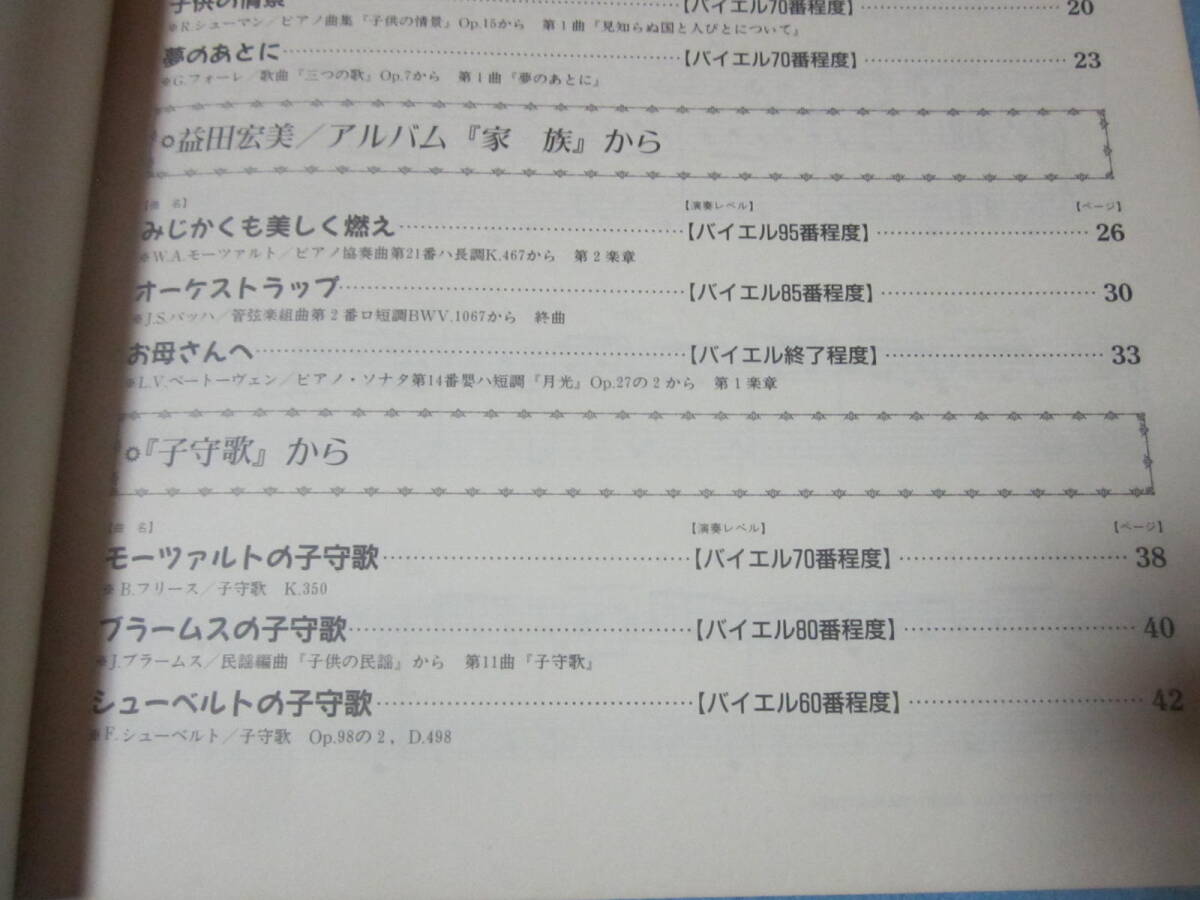 子供の情景……【バイエル70番程度】……20
※R.シューマン／ピアノ曲集『子供の情景』Op.15から 第1曲『見知らぬ国と人びとについて』
夢のあとに……【バイエル70番程度】……23
※G.フォーレ／歌曲『三つの歌』Op.7から 第1曲『夢のあとに』
益田宏美／アルバム『家 族』から
【曲 名】 【演奏レベル】 【ページ】
みじかくも美しく燃え……【バイエル95番程度】……26
※W.A.モーツァルト／ピアノ協奏曲第21番ハ長調K.467から 第2楽章
オーケストラップ……【バイエル85番程度】……30
※J.S.バッハ／管弦楽組曲第2番ロ短調BWV.1067から 終曲
お母さんへ……【バイエル終了程度】……33
※L.V.ベートーヴェン／ピアノ・ソナタ第14番嬰ハ短調『月光』Op.27の2から 第1楽章
『子守歌』から
【曲 名】 【演奏レベル】 【ページ】
モーツァルトの子守歌……【バイエル70番程度】……38
※B.フリース／子守歌 K.350
ブラームスの子守歌……【バイエル80番程度】……40
※J.ブラームス／民謡編曲『子供の民謡』から 第11曲『子守歌』
シューベルトの子守歌……【バイエル60番程度】……42
※F.シューベルト／子守歌 Op.98の2，D.498